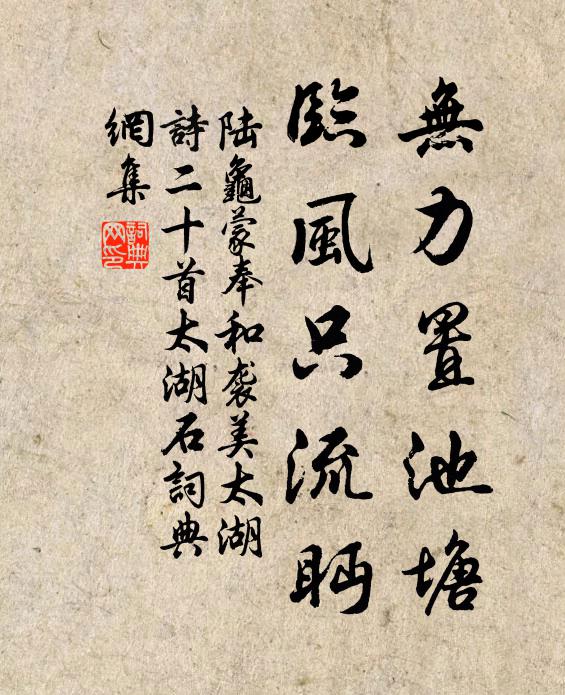 無力置池塘
臨風只流眄
陸龜蒙奉和袭美太湖
詩二十首太湖石詞典
網集
詞典
网印